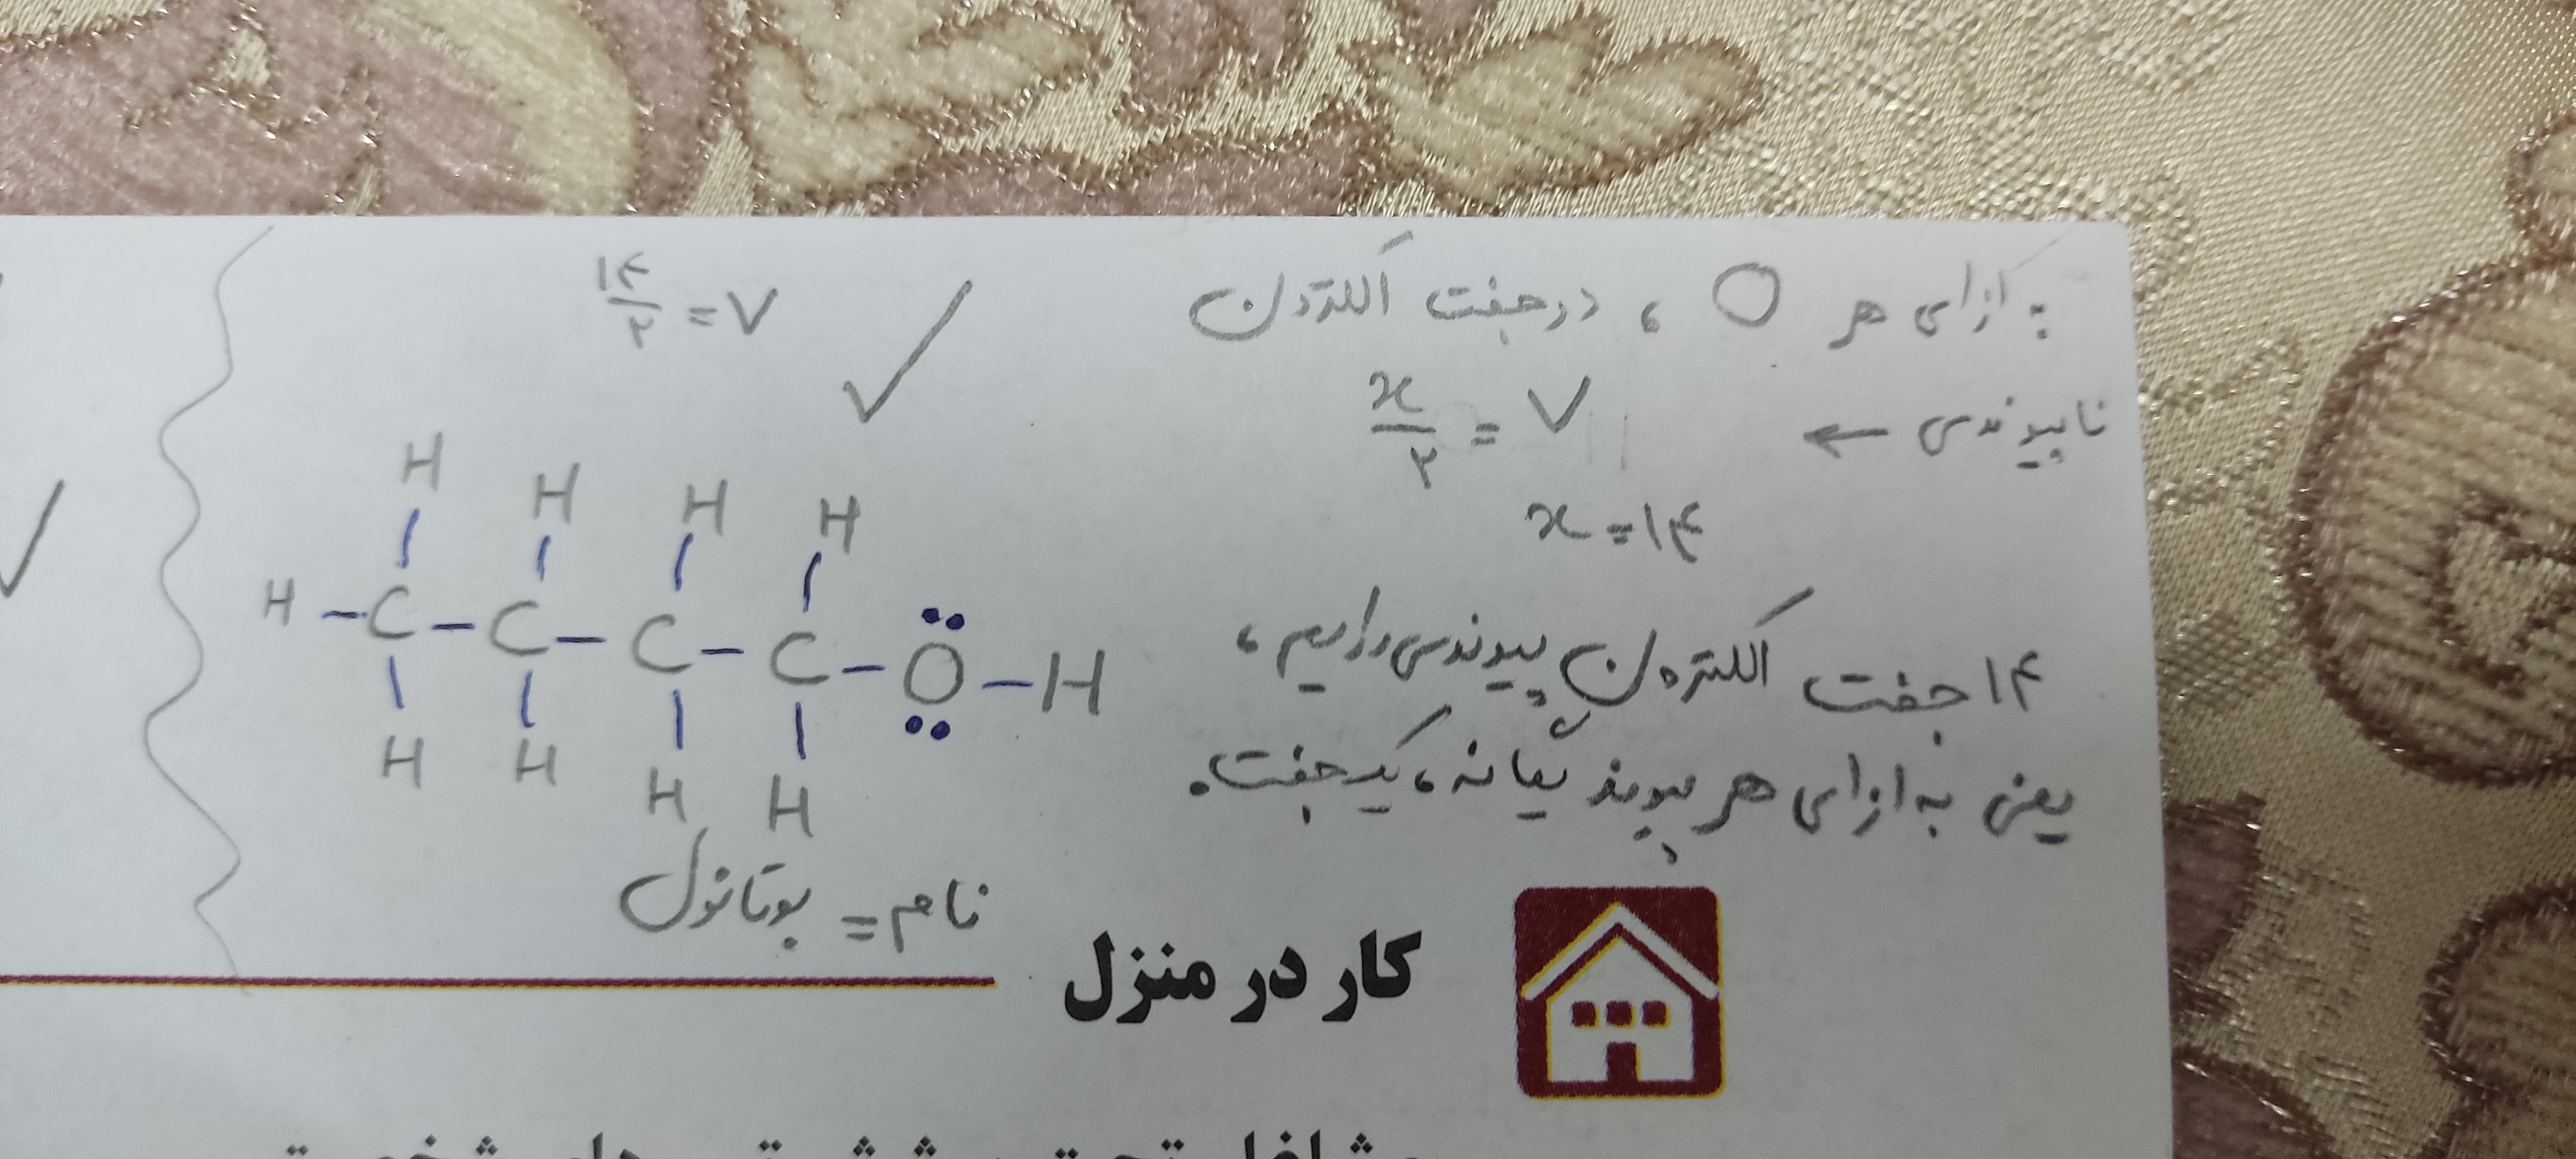 به ازای هر O، دو جفت الکترون
ناپیوندی ←
x/۲ = ۷
x = ۱۴
۱۴ جفت الکترون پیوندی داریم،
یعنی به ازای هر پیوند یگانه، یک جفت.
۱۴/۲ = ۷ ✓
H H H H
H - C - C - C - C - O - H
H H H H
نام = بوتانول
کار در منزل